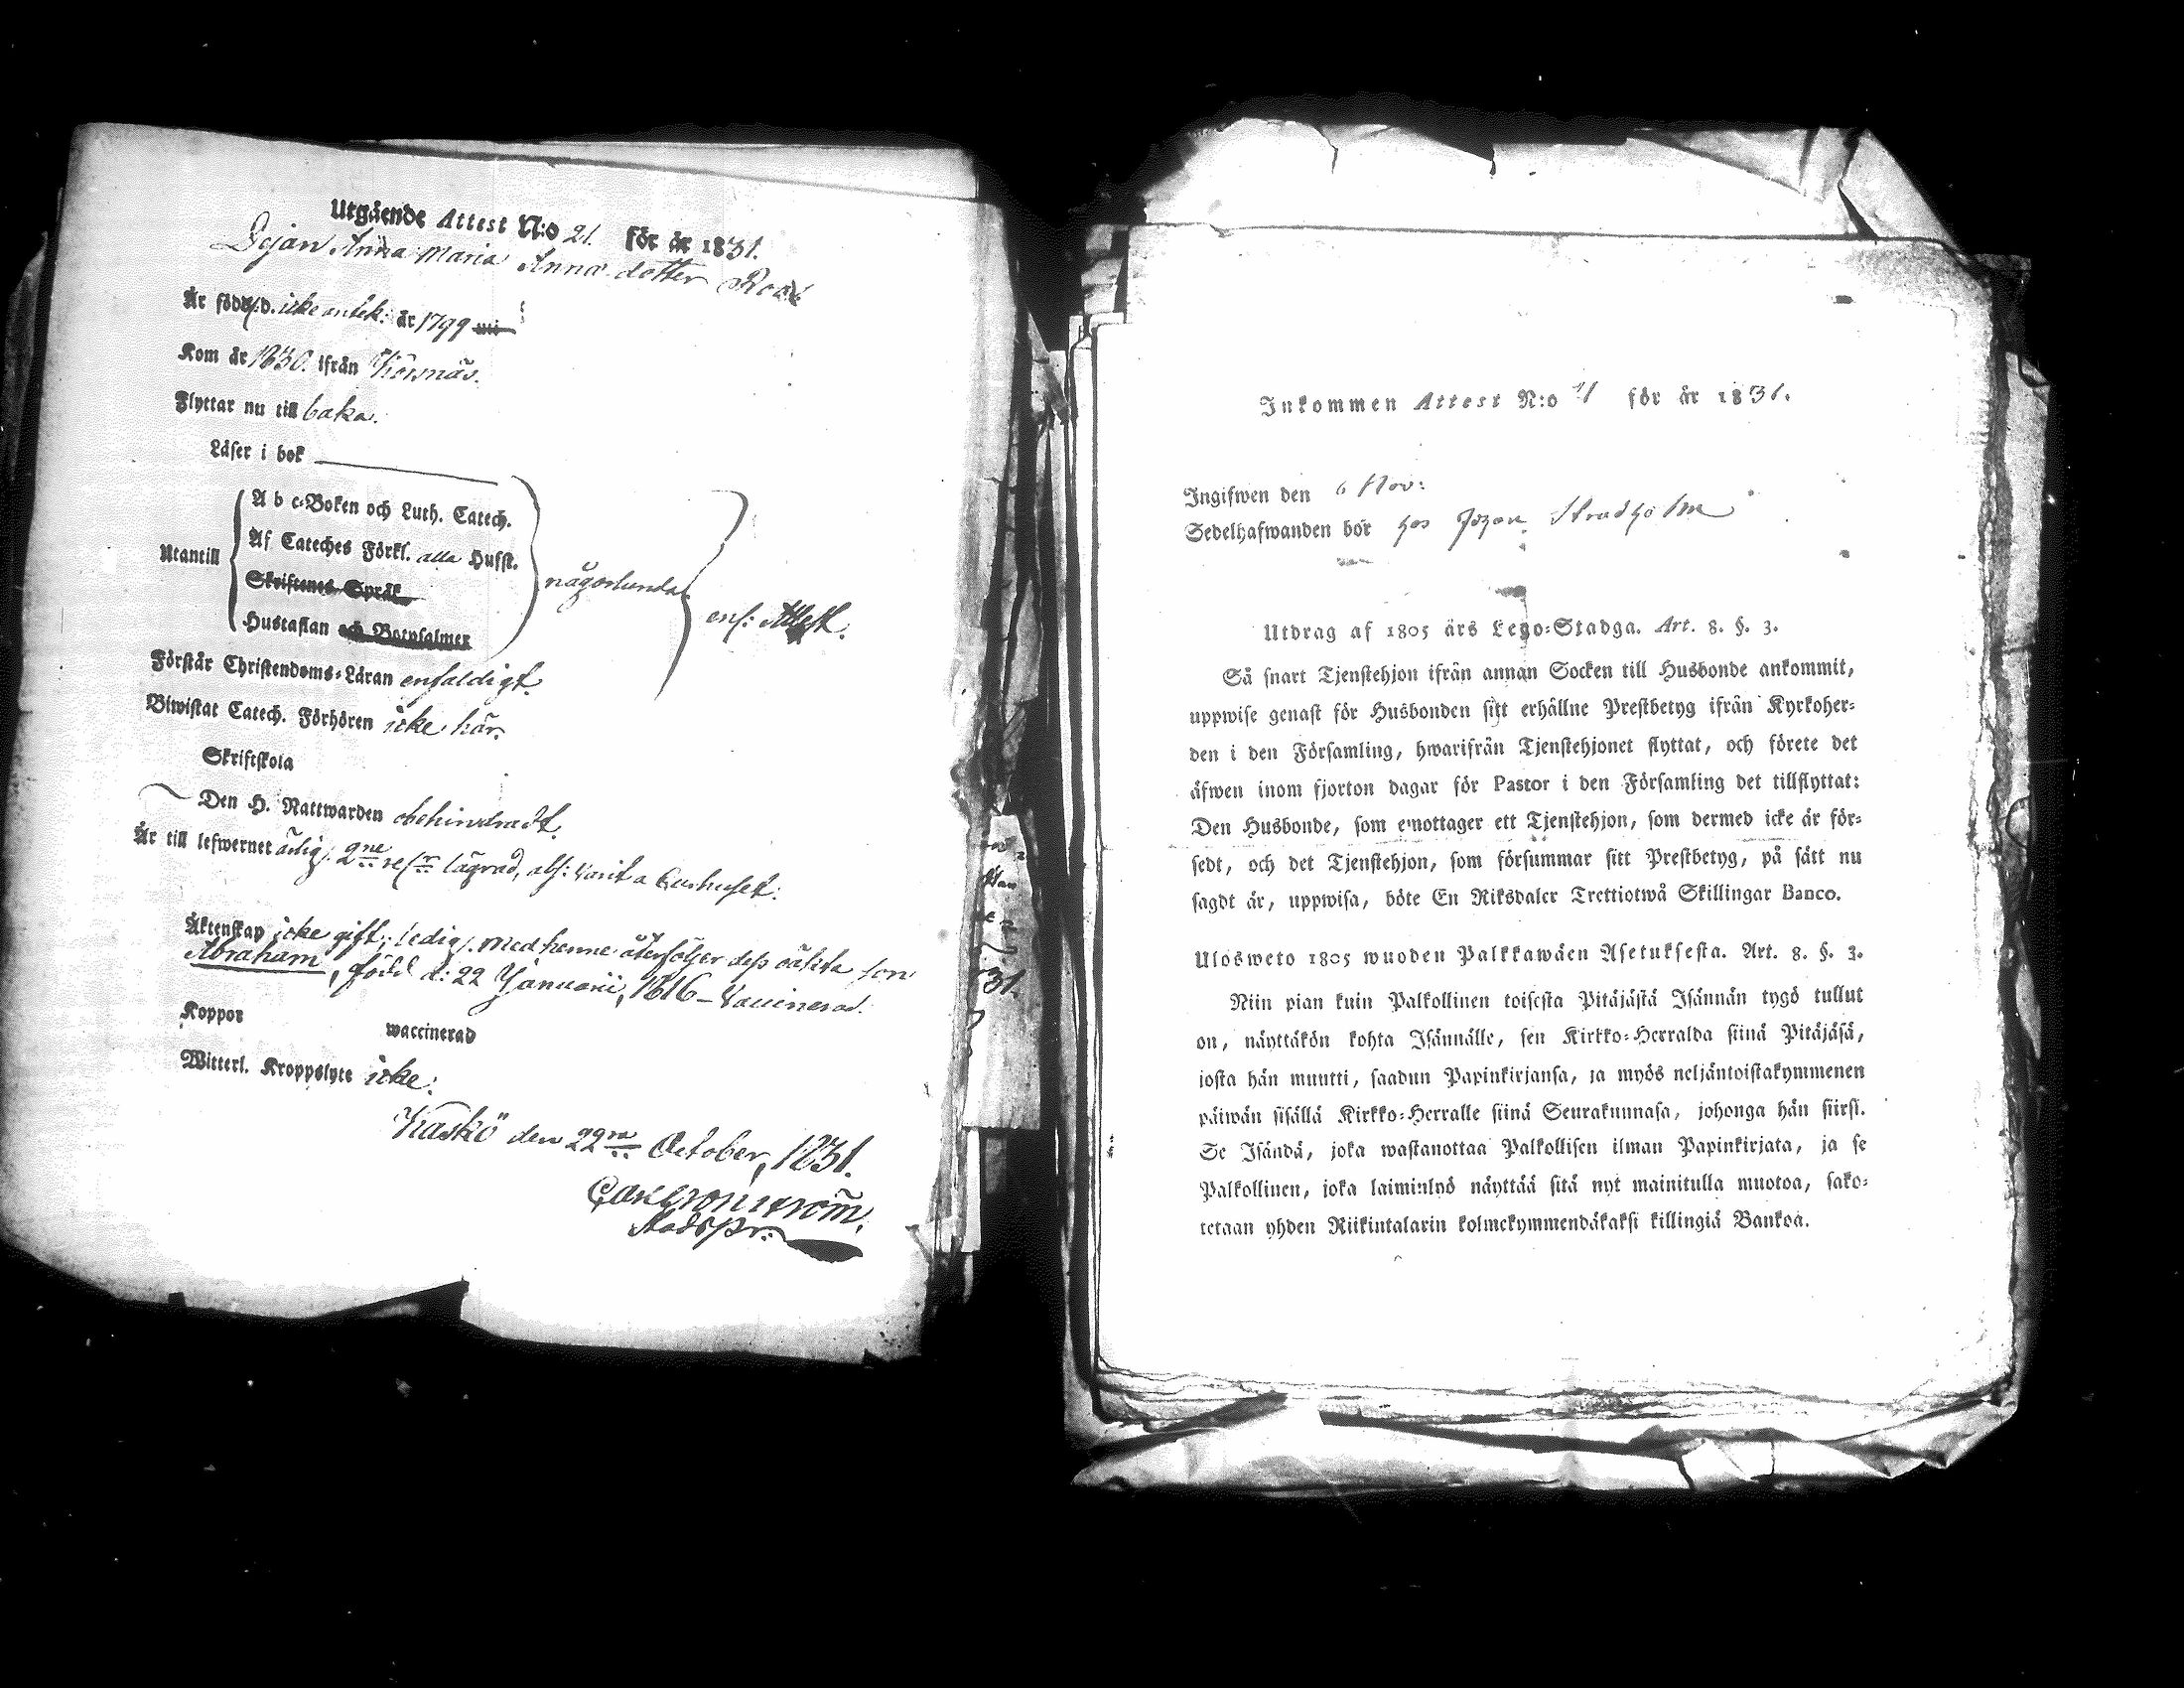 Utgående Attest N:o 21. för år 1831.
Anna Maria Anna dotter
Är född d. icke antek: år 1799
Kom år 1830. ifrån
Flyttar nu till baka.
Läser i bok
Utantill
A b c-Boken och Luth. Catech.
Af Cateches Förkl. alla Husst.
Skriftenes Språk
Hustaflan och Botpsalmer
någorlunda
enl: Attest.
Förstår Christendoms-Läran enfaldigt.
Biwistat Catech. Förhören icke här.
Skriftskola
Den H. Nattwarden obehindradt.
Är till lefwernet ärlig, 2ne lägrad,
Äktenskap icke gift; ledig. med henne återföljer dess oäkta son
Abraham, född d: 22 Januarii, 1816 – Vaccinerad.
Koppor waccinerad
Witterl. Kroppslyte icke.
Kaskö den 22 October, 1831.
31.
Inkommen Attest N:o för år 1831.
Ingifwen den 6 Nov:
Sedelhafwanden bör hos Johan
Utdrag af 1805 års Lego-Stadga. Art. 8. §. 3.
Så snart Tjenstehjon ifrån annan Socken till Husbonde ankommit,
uppwise genast för Husbonden sitt erhållne Prestbetyg ifrån Kyrkoher-
den i den Församling, hwarifrån Tjenstehjonet flyttat, och förete det
äfwen inom fjorton dagar för Pastor i den Församling det tillflyttat:
Den Husbonde, som emottager ett Tjenstehjon, som dermed icke är för-
sedt, och det Tjenstehjon, som försummar sitt Prestbetyg, på sätt nu
sagdt är, uppwisa, böte En Riksdaler Trettiotwå Skillingar Banco.
Ulosweto 1805 wuoden Palkkawäen Asetuksesta. Art. 8. §. 3.
Niin pian kuin Palkollinen toisesta Pitäjästä Isännän tygö tullut
on, näyttäkön kohta Isännälle, sen Kirkko-Herralda siinä Pitäjäsä,
josta hän muutti, saadun Papinkirjansa, ja myös neljäntoistakymmenen
päiwän sisällä Kirkko-Herralle siinä Seurakunnasa, johonga hän siirsi.
Se Isändä, joka wastanottaa Palkollisen ilman Papinkirjata, ja se
Palkollinen, joka laiminlyö näyttää sitä nyt mainitulla muotoa, sako-
tetaan yhden Riikintalarin kolmekymmendäkaksi killingiä Bankoa.